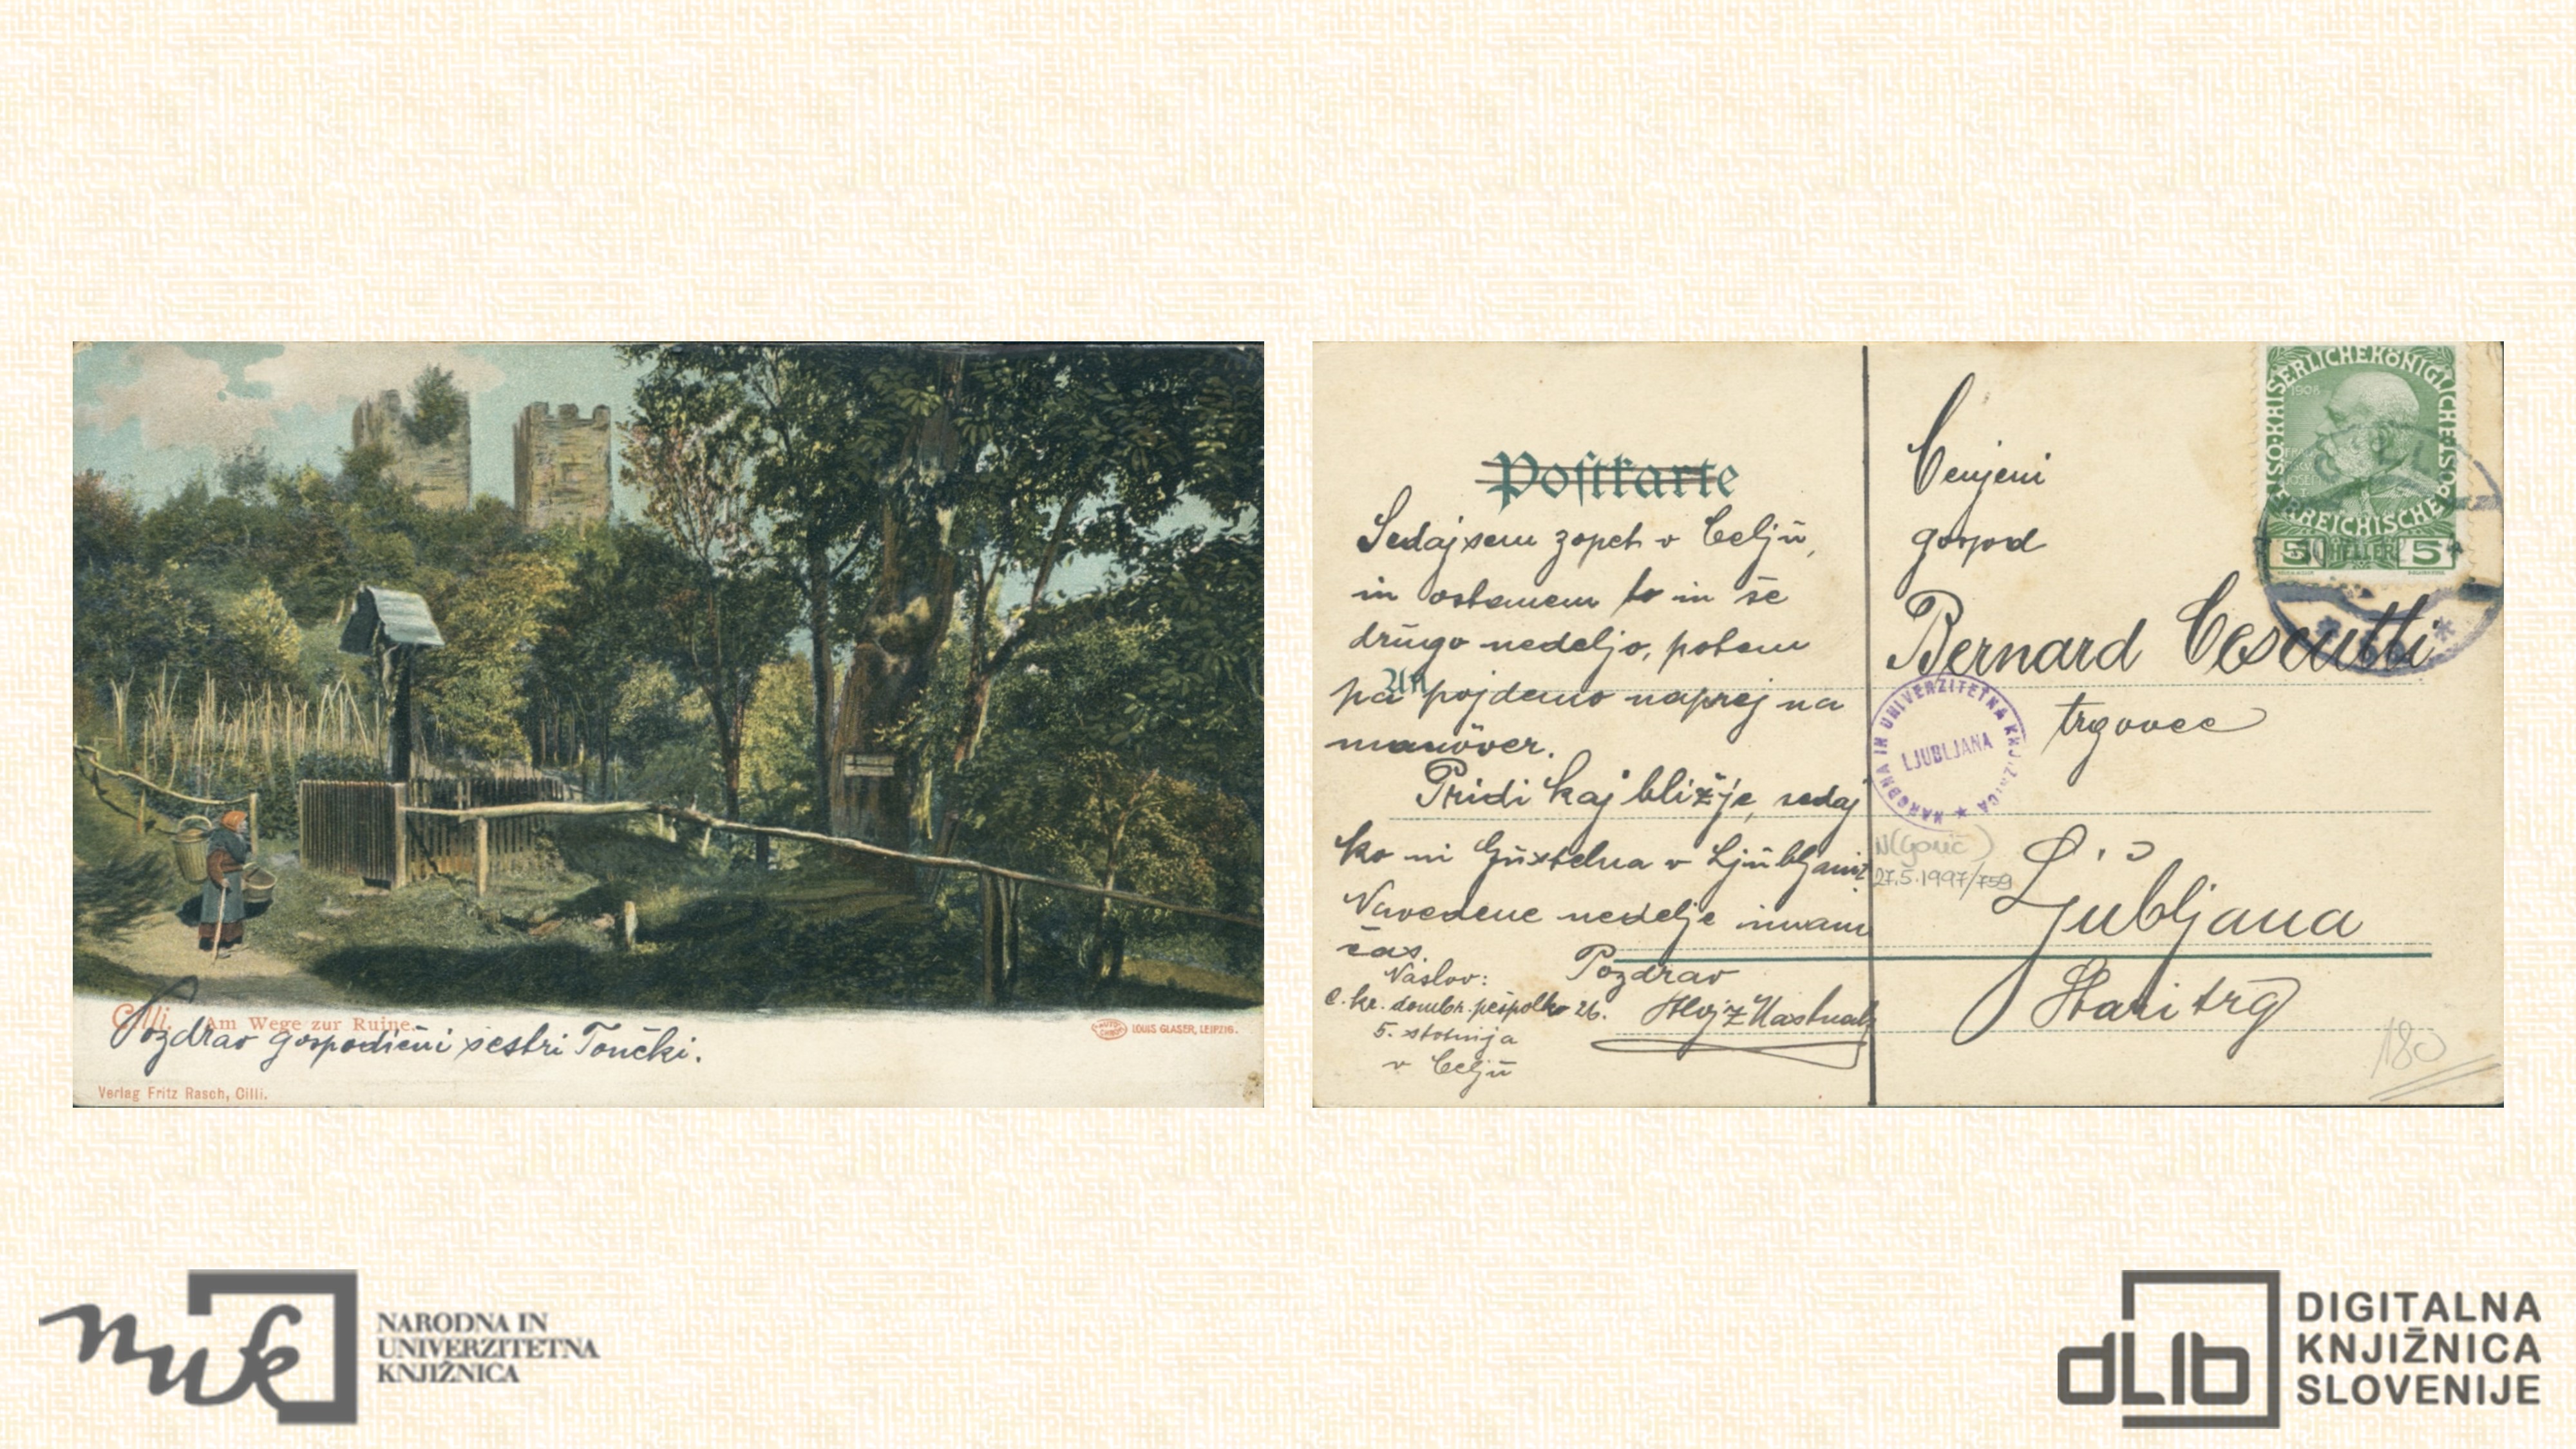 Cilli. Am Wege zur Ruine.
LOUIS GLASER, LEIPZIG.
Pozdrav gospodični sestri Tončki.
Verlag Fritz Rasch, Cilli.
Postkarte
Sedaj sem zopet v Celju,
in ostanem to in še
drugo nedeljo, potem
An
pa pojdemo naprej na
manöver.
Pridi kaj bližje, sedaj
ko ni Guštelna v Ljubljani.
Navedene nedelje imam
čas.
Pozdrav
Naslov:
c. kr. dombr. pešpolka 26.
5. stotnija
v Celju
Cenjeni
gospod
Bernard Cescutti
trgovec
Ljubljana
Stari trg
KAISERLICHE KÖNIGLICHE ÖSTERREICHISCHE
1908
5 HELLER 5
NARODNA IN UNIVERZITETNA KNJIŽNICA
LJUBLJANA
27.5.1997/759
180
nuk
NARODNA IN
UNIVERZITETNA
KNJIŽNICA
dLib
DIGITALNA
KNJIŽNICA
SLOVENIJE